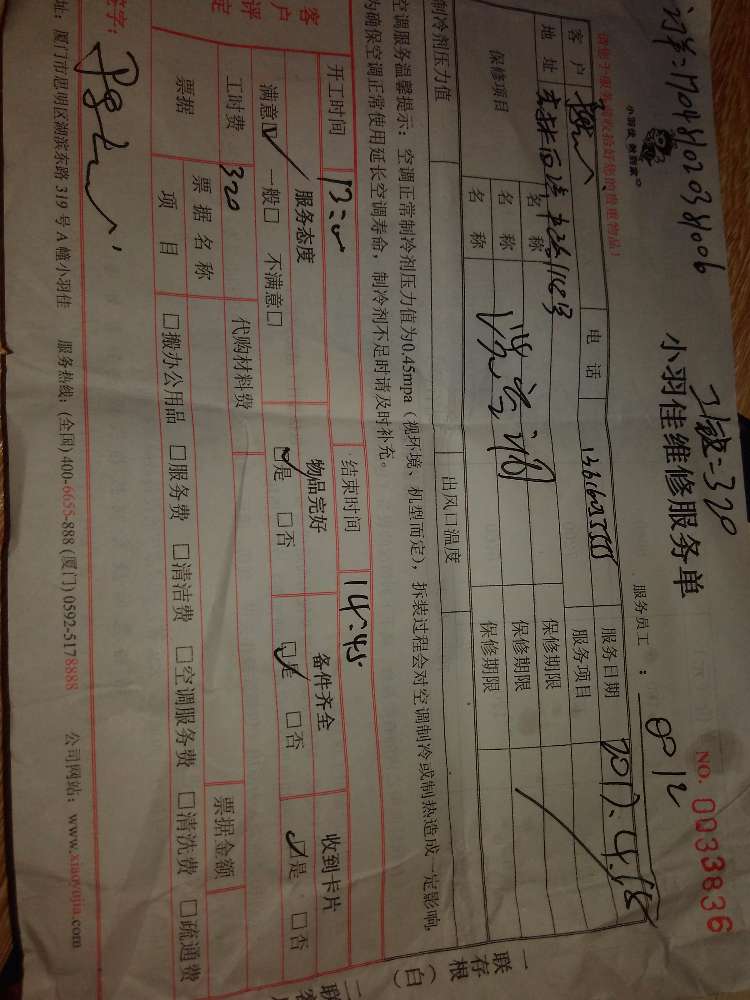 小羽佳维修服务单
NO. 0033836
小羽佳 做到家
工敏=320
服务员工： 012
请您于服务前收拾好您的贵重物品！
客户 电话 服务日期 2017.4.18
地址 服务项目
保修项目 名称 保修期限
名称 保修期限
名称 保修期限
制冷剂压力值 出风口温度
空调服务温馨提示：空调正常制冷剂压力值为0.45mpa（视环境、机型而定），拆装过程会对空调制冷或制热造成一定影响，
为确保空调正常使用延长空调寿命，制冷剂不足时请及时补充。
开工时间 结束时间 14:45
客户评定
服务态度 物品完好 备件齐全 收到卡片
满意☑ 一般□ 不满意□ ☑是 □否 ☑是 □否 ☑是 □否
工时费 320 代购材料费 票据金额
票据 票据名称
项目 □搬办公用品 □服务费 □清洁费 □空调服务费 □清洗费 □疏通费
签字：
址：厦门市思明区湖滨东路 319 号 A 幢小羽佳 服务热线：(全国) 400-6655-888 (厦门) 0592-5178888 公司网站：www.xiaoyujia.com
一联存根（白）